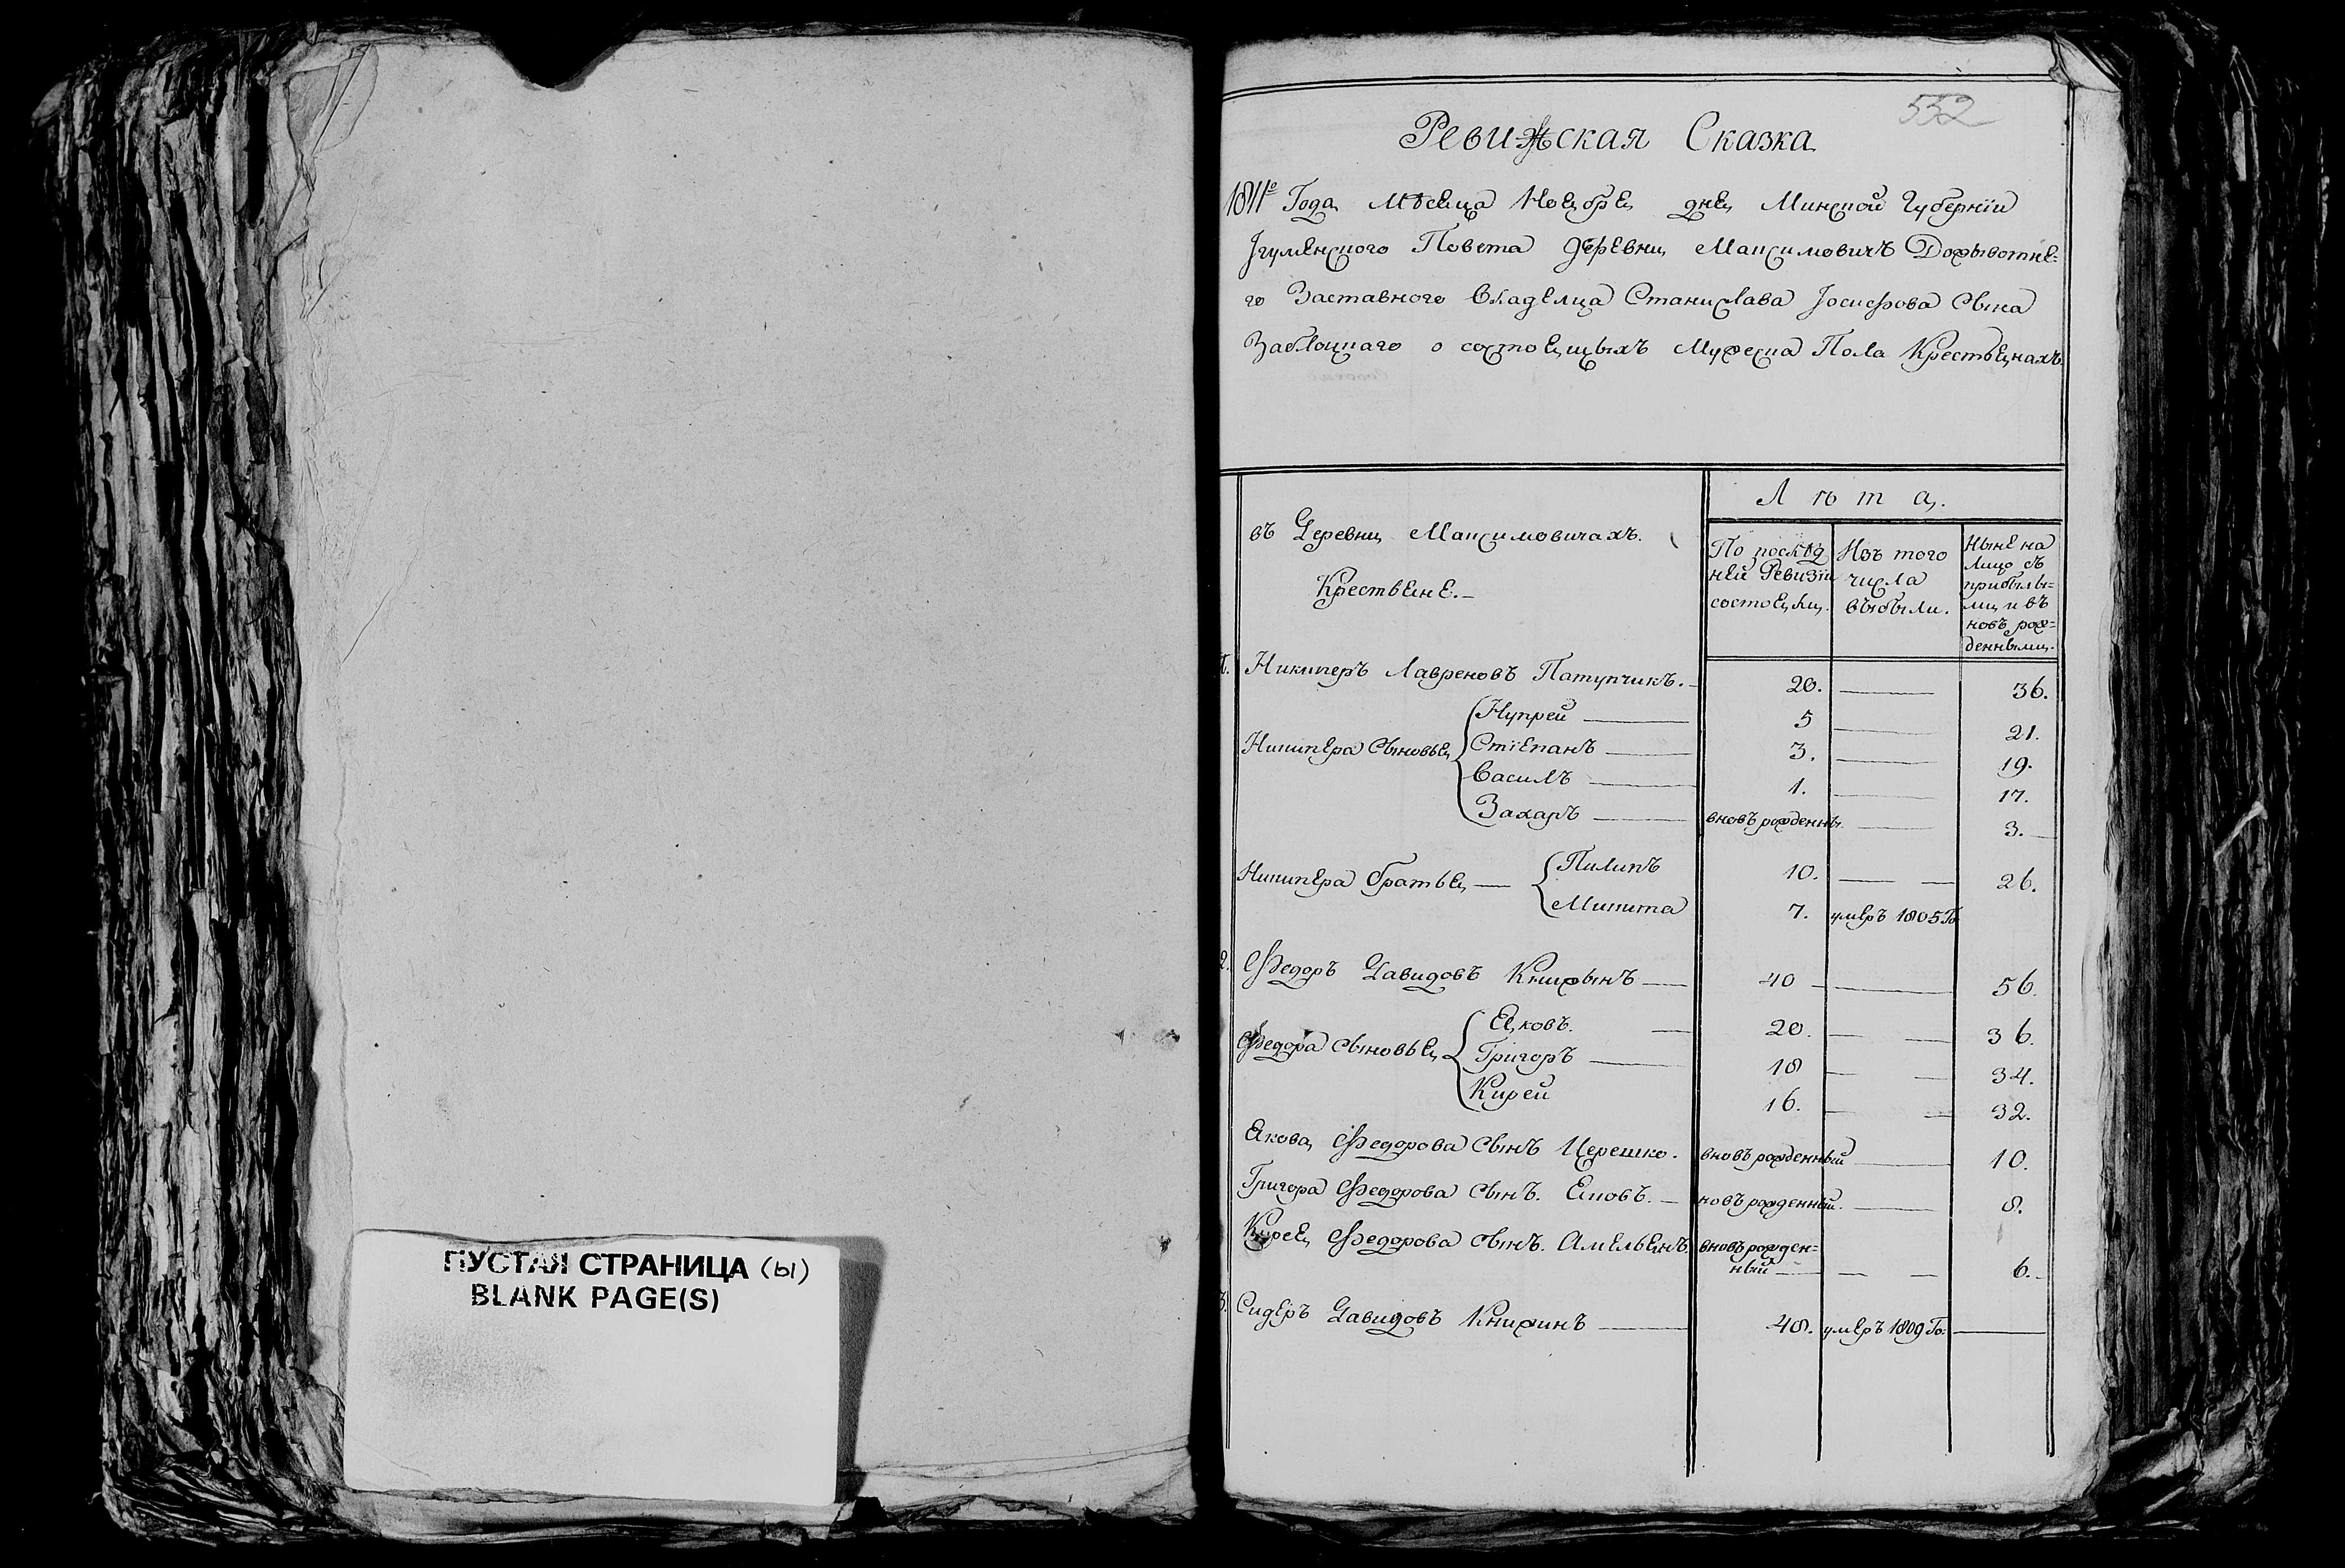 ПУСТАЯ СТРАНИЦА (ы)
BLANK PAGE(S)
552
Ревижская Сказка
1811го Года месяца Ноября дня Минской Губернiи
Iгуменского Повета деревни Максимовичъ Дожывотне=
го Заставного Владелца Станислава Iосифова Сына
Заблоцкаго о состоящыхъ Мужеска Пола Крестьянахъ
Лѣта.
въ Деревни Максимовичахъ.
Крестьяне.
По послѣд
ней Ревизiи
состояли.
Изъ того
числа
выбыли.
Ныне на
Лицо съ
прибылы=
ми и въ
новъ рож=
денными.
1. Никиперъ Лавреновъ Патупчикъ. 20. 36.
Никипера Сыновья
Нупрей 5 21.
Стiепанъ 3. 19.
Василъ 1. 17.
Захаръ вновъ рожденны. 3.
Никипера братья
Пилипъ 10. 26.
Микита 7. умеръ 1805 Го
2. Федоръ Давидовъ Книжынъ 40 56.
Федора Сыновья
Яковъ. 20. 36.
Григоръ 18 34.
Кирей 16. 32.
Якова Федорова Сынъ Церешко. вновъ рожденный 10.
Григора Федорова Сынъ. Яковъ. новъ рожденный. 8.
Кирея Федорова Сынъ. Амельянъ вновъ рожден=
ный 6.
3. Сидеръ Давидовъ Книжинъ 48. умеръ 1809 Го.